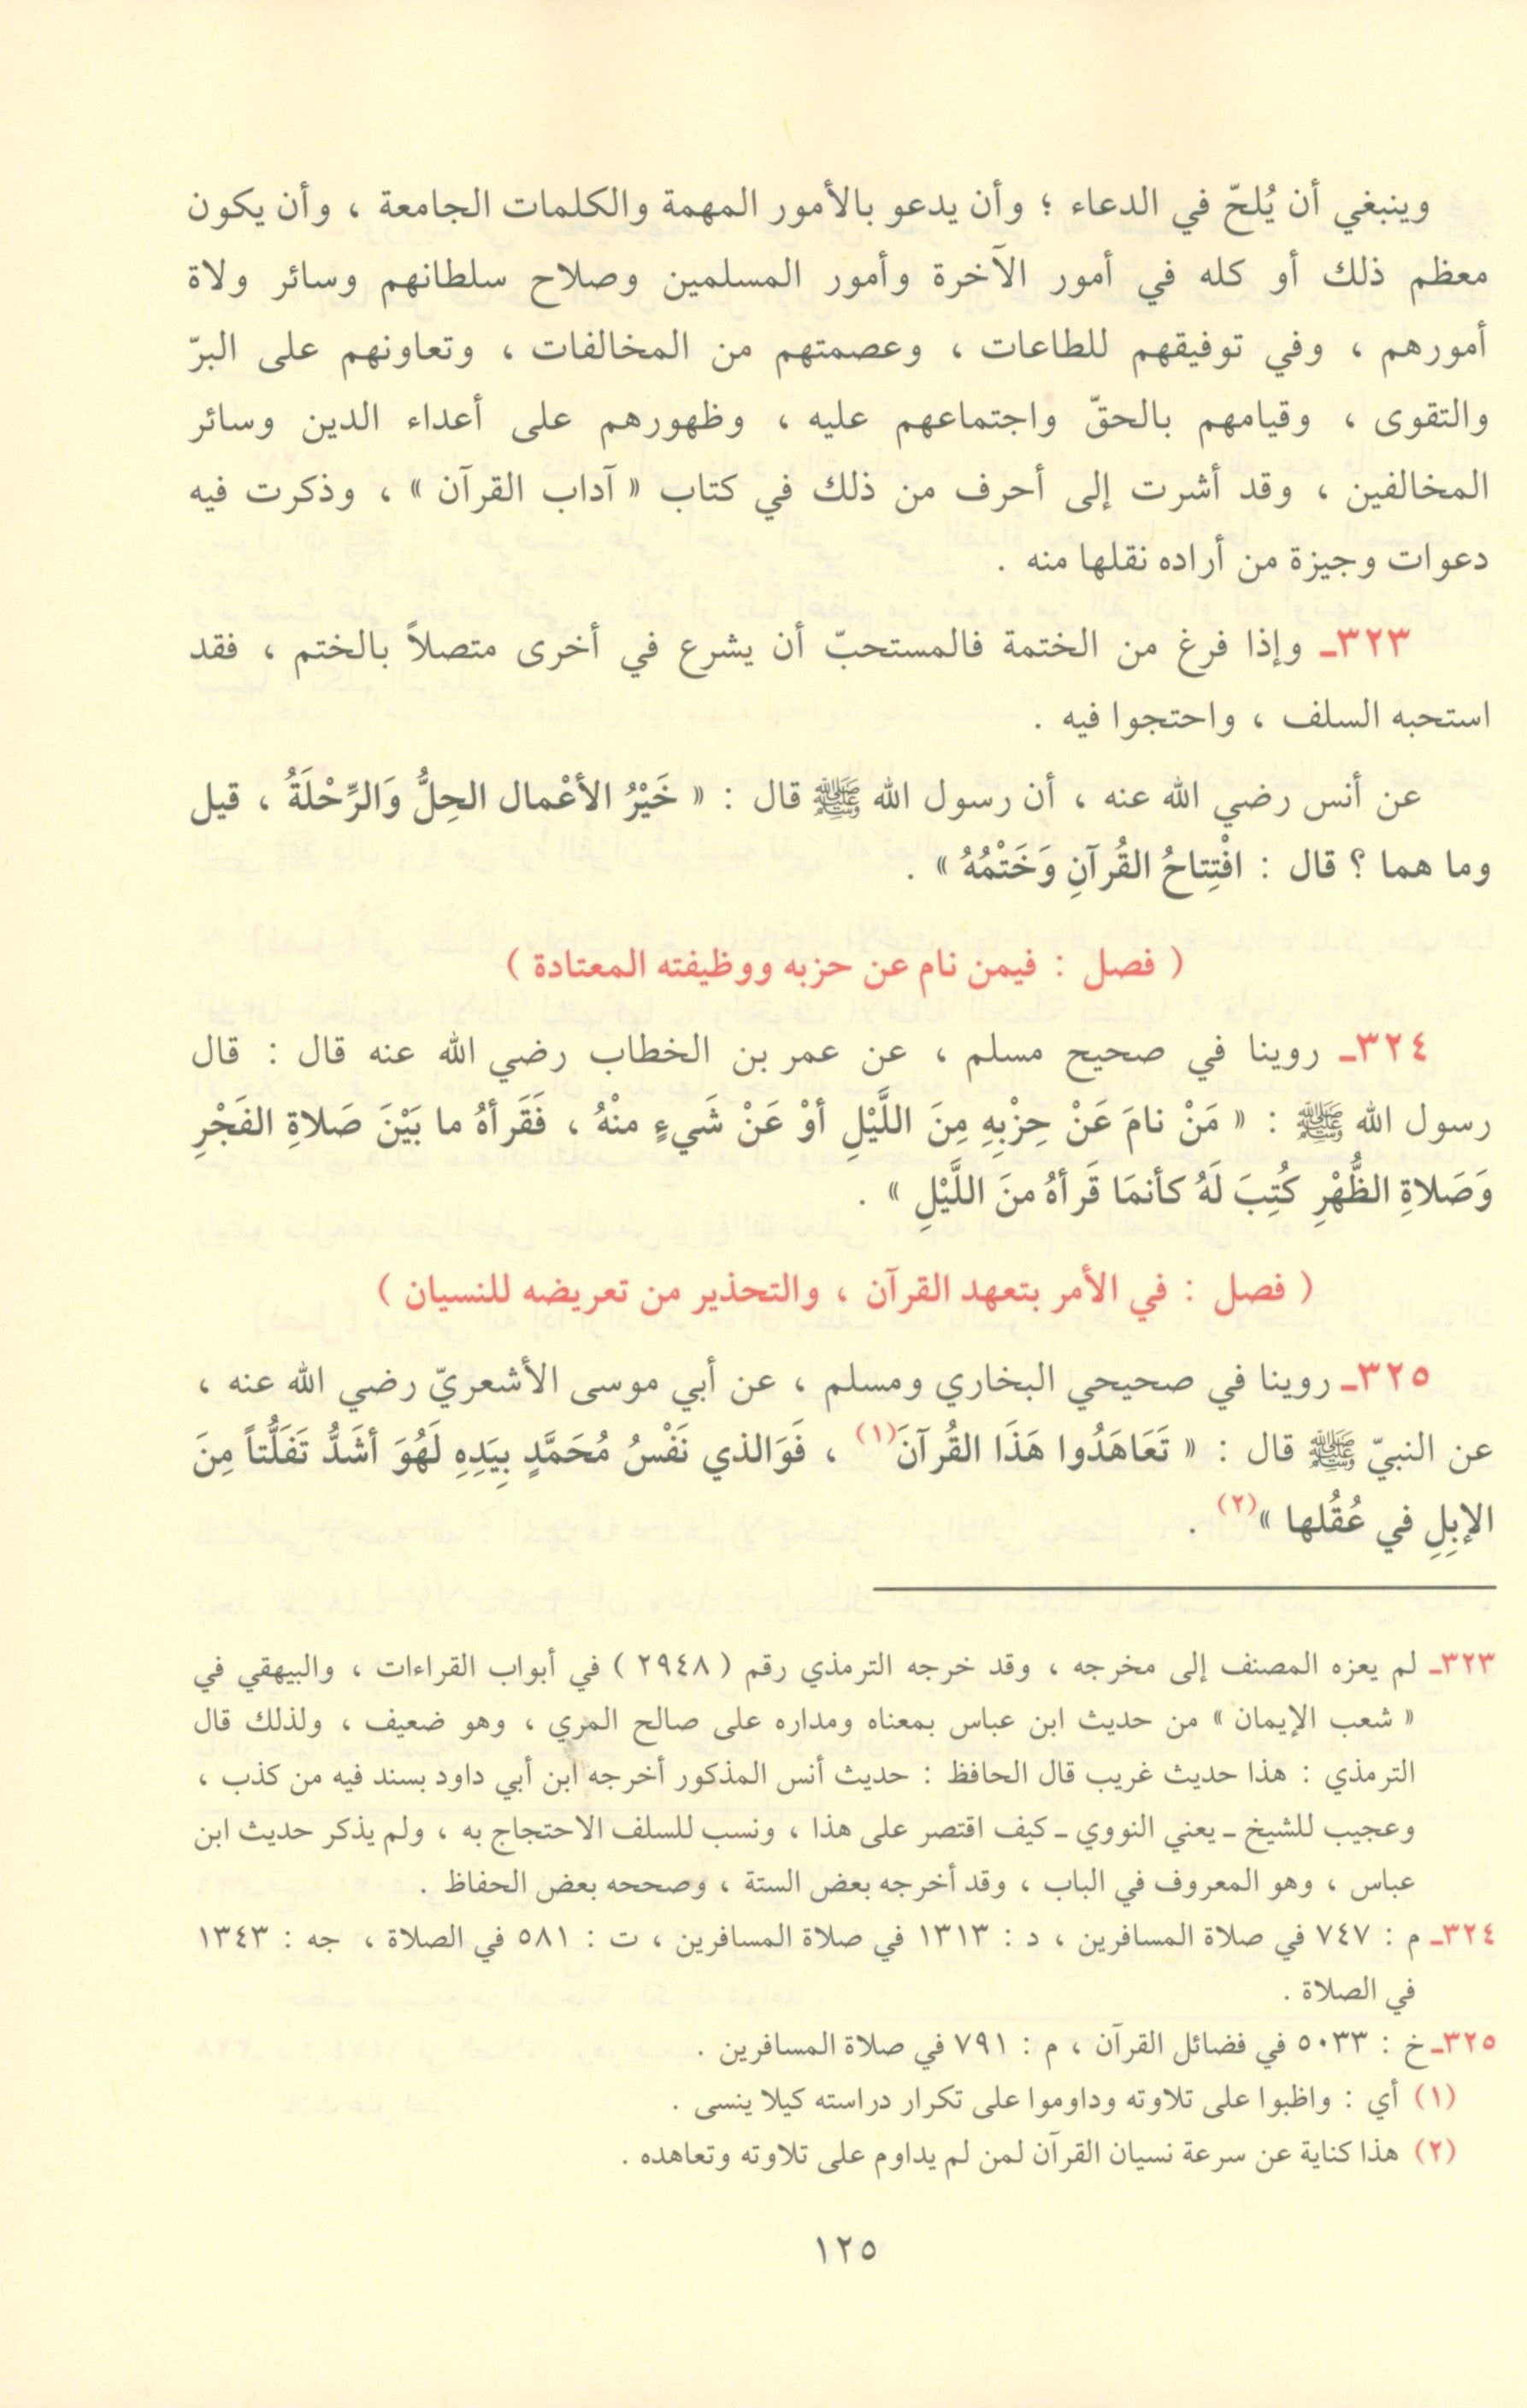 وينبغي أن يُلحّ في الدعاء ؛ وأن يدعو بالأمور المهمة والكلمات الجامعة ، وأن يكون
معظم ذلك أو كله في أمور الآخرة وأمور المسلمين وصلاح سلطانهم وسائر ولاة
أمورهم ، وفي توفيقهم للطاعات ، وعصمتهم من المخالفات ، وتعاونهم على البرّ
والتقوى ، وقيامهم بالحقّ واجتماعهم عليه ، وظهورهم على أعداء الدين وسائر
المخالفين ، وقد أشرت إلى أحرف من ذلك في كتاب « آداب القرآن » ، وذكرت فيه
دعوات وجيزة من أراده نقلها منه .
٣٢٣ـ وإذا فرغ من الختمة فالمستحبّ أن يشرع في أخرى متصلاً بالختم ، فقد
استحبه السلف ، واحتجوا فيه .
عن أنس رضي الله عنه ، أن رسول الله ﷺ قال : « خَيْرُ الأعْمال الحِلُّ وَالرِّحْلَةُ ، قيل
وما هما ؟ قال : افْتِتاحُ القُرآنِ وَخَتْمُهُ » .
( فصل : فيمن نام عن حزبه ووظيفته المعتادة )
٣٢٤ـ روينا في صحيح مسلم ، عن عمر بن الخطاب رضي الله عنه قال : قال
رسول الله ﷺ : « مَنْ نامَ عَنْ حِزْبِهِ مِنَ اللَّيْلِ أوْ عَنْ شَيءٍ منْهُ ، فَقَرأهُ ما بَيْنَ صَلاةِ الفَجْرِ
وَصَلاةِ الظُّهْرِ كُتِبَ لَهُ كأنمَا قَرأهُ منَ اللَّيْلِ » .
( فصل : في الأمر بتعهد القرآن ، والتحذير من تعريضه للنسيان )
٣٢٥ـ روينا في صحيحي البخاري ومسلم ، عن أبي موسى الأشعريّ رضي الله عنه ،
عن النبيّ ﷺ قال : « تَعَاهَدُوا هَذَا القُرآنَ(١) ، فَوَالذي نَفْسُ مُحَمَّدٍ بِيَدِهِ لَهُوَ أشَدُّ تَفَلُّتاً مِنَ
الإبِلِ في عُقُلها »(٢) .
٣٢٣ـ لم يعزه المصنف إلى مخرجه ، وقد خرجه الترمذي رقم ( ٢٩٤٨ ) في أبواب القراءات ، والبيهقي في
« شعب الإيمان » من حديث ابن عباس بمعناه ومداره على صالح المري ، وهو ضعيف ، ولذلك قال
الترمذي : هذا حديث غريب قال الحافظ : حديث أنس المذكور أخرجه ابن أبي داود بسند فيه من كذب ،
وعجيب للشيخ ـ يعني النووي ـ كيف اقتصر على هذا ، ونسب للسلف الاحتجاج به ، ولم يذكر حديث ابن
عباس ، وهو المعروف في الباب ، وقد أخرجه بعض الستة ، وصححه بعض الحفاظ .
٣٢٤ـ م : ٧٤٧ في صلاة المسافرين ، د : ١٣١٣ في صلاة المسافرين ، ت : ٥٨١ في الصلاة ، جه : ١٣٤٣
في الصلاة .
٣٢٥ـ خ : ٥٠٣٣ في فضائل القرآن ، م : ٧٩١ في صلاة المسافرين .
(١) أي : واظبوا على تلاوته وداوموا على تكرار دراسته كيلا ينسى .
(٢) هذا كناية عن سرعة نسيان القرآن لمن لم يداوم على تلاوته وتعاهده .
١٢٥